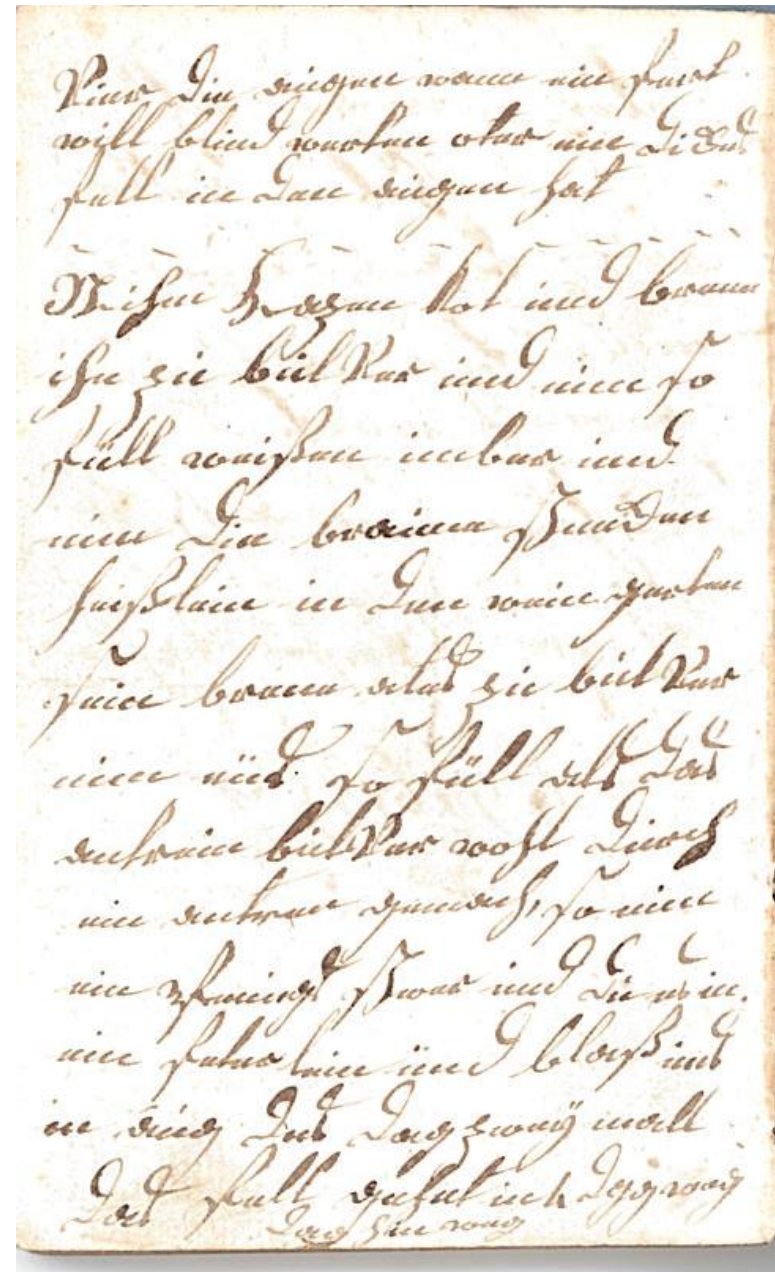 Vier die augen wann ein fert
will blind werten oter ein dickes
fell in den augen hat
Nihm kazen kot und brenn
ihn zu bulver und nim so
füll weißen imber und
nim die braune
heißlein in den wein garten
sein brenn alles zu bulver
nim auch so füll als das
antrein bulver wohl durch
ein antren gemach, so nim
ein pfenings swer und du es in
ein feterlein und blaß ins
in aug des dags zwey mall
das fell gehet in weg
dag hin weg